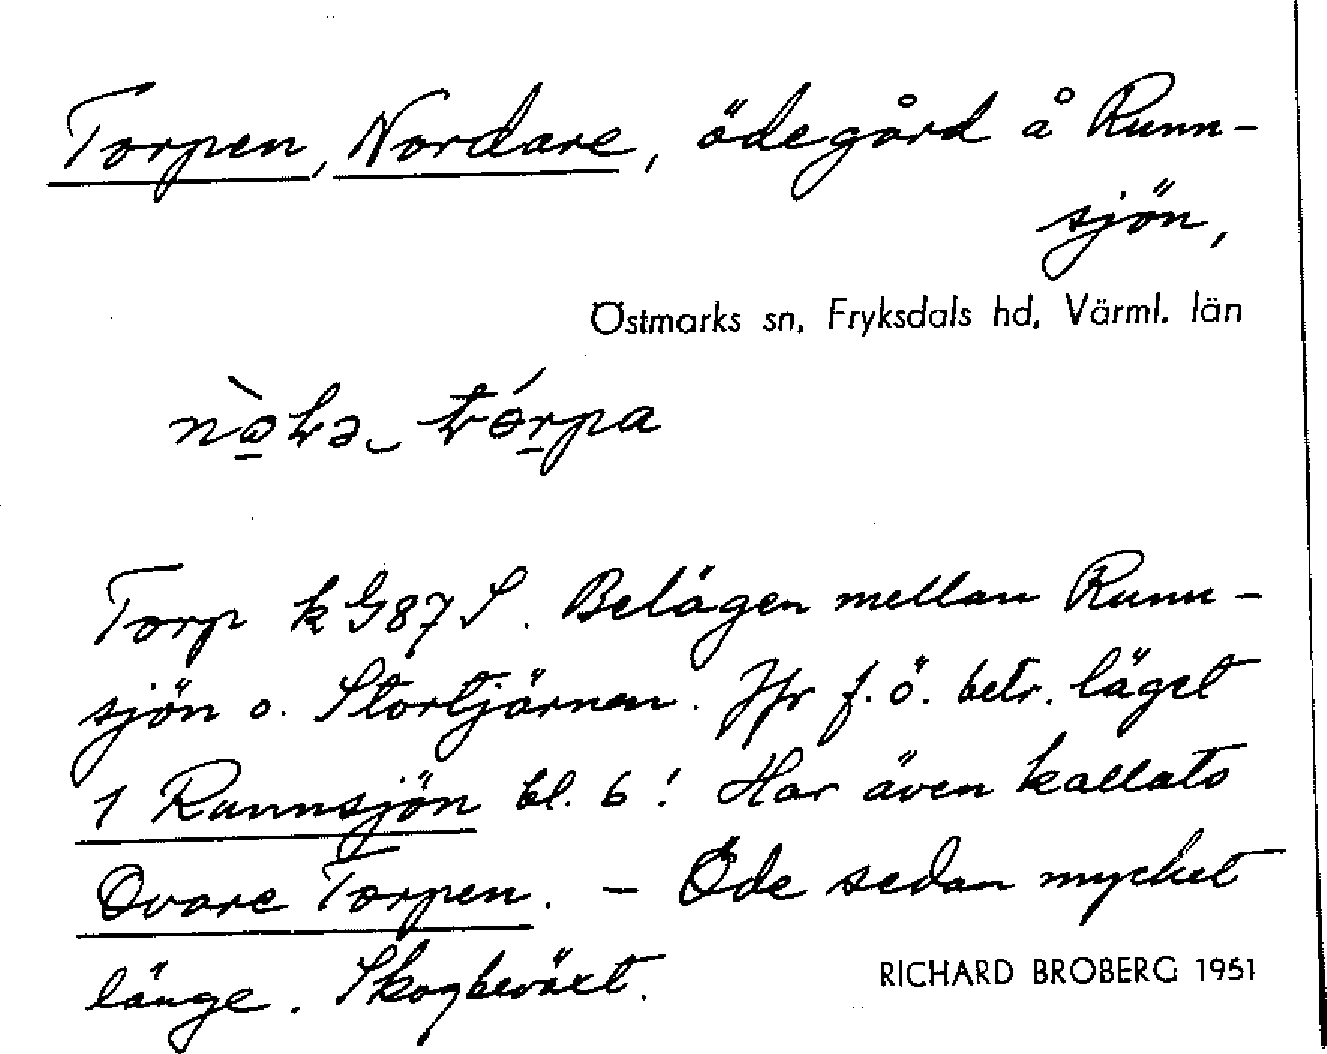 Torpen, Nordare, ödegård å Runn-
sjön,
Östmarks sn, Fryksdals hd, Värml. län
Torp k G87 S. Belägen mellan Runn-
sjön o. Stortjärnen. Jfr f. ö. betr. läget
1 Runnsjön bl. 6! Har även kallats
Ovare Torpen. – Öde sedan mycket
länge. Skogbeväxt.
RICHARD BROBERG 1951